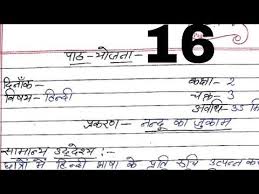 16
पाठ-योजना-
दिनाँक- कक्षा- 2
विषय- हिन्दी चक्र- 3
अवधि- 35 मि
प्रकरण- नन्दू का जुकाम
सामान्य उद्देश्य:-
छात्रों में हिन्दी भाषा के प्रति रुचि उत्पन्न कर